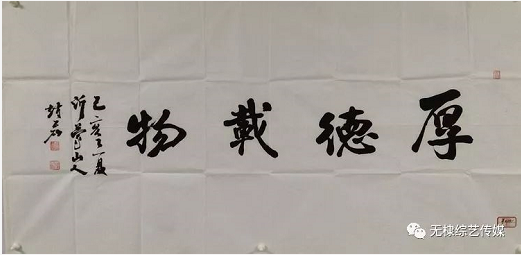 厚德載物
己亥之夏
沂蒙山人
无棣综艺传媒